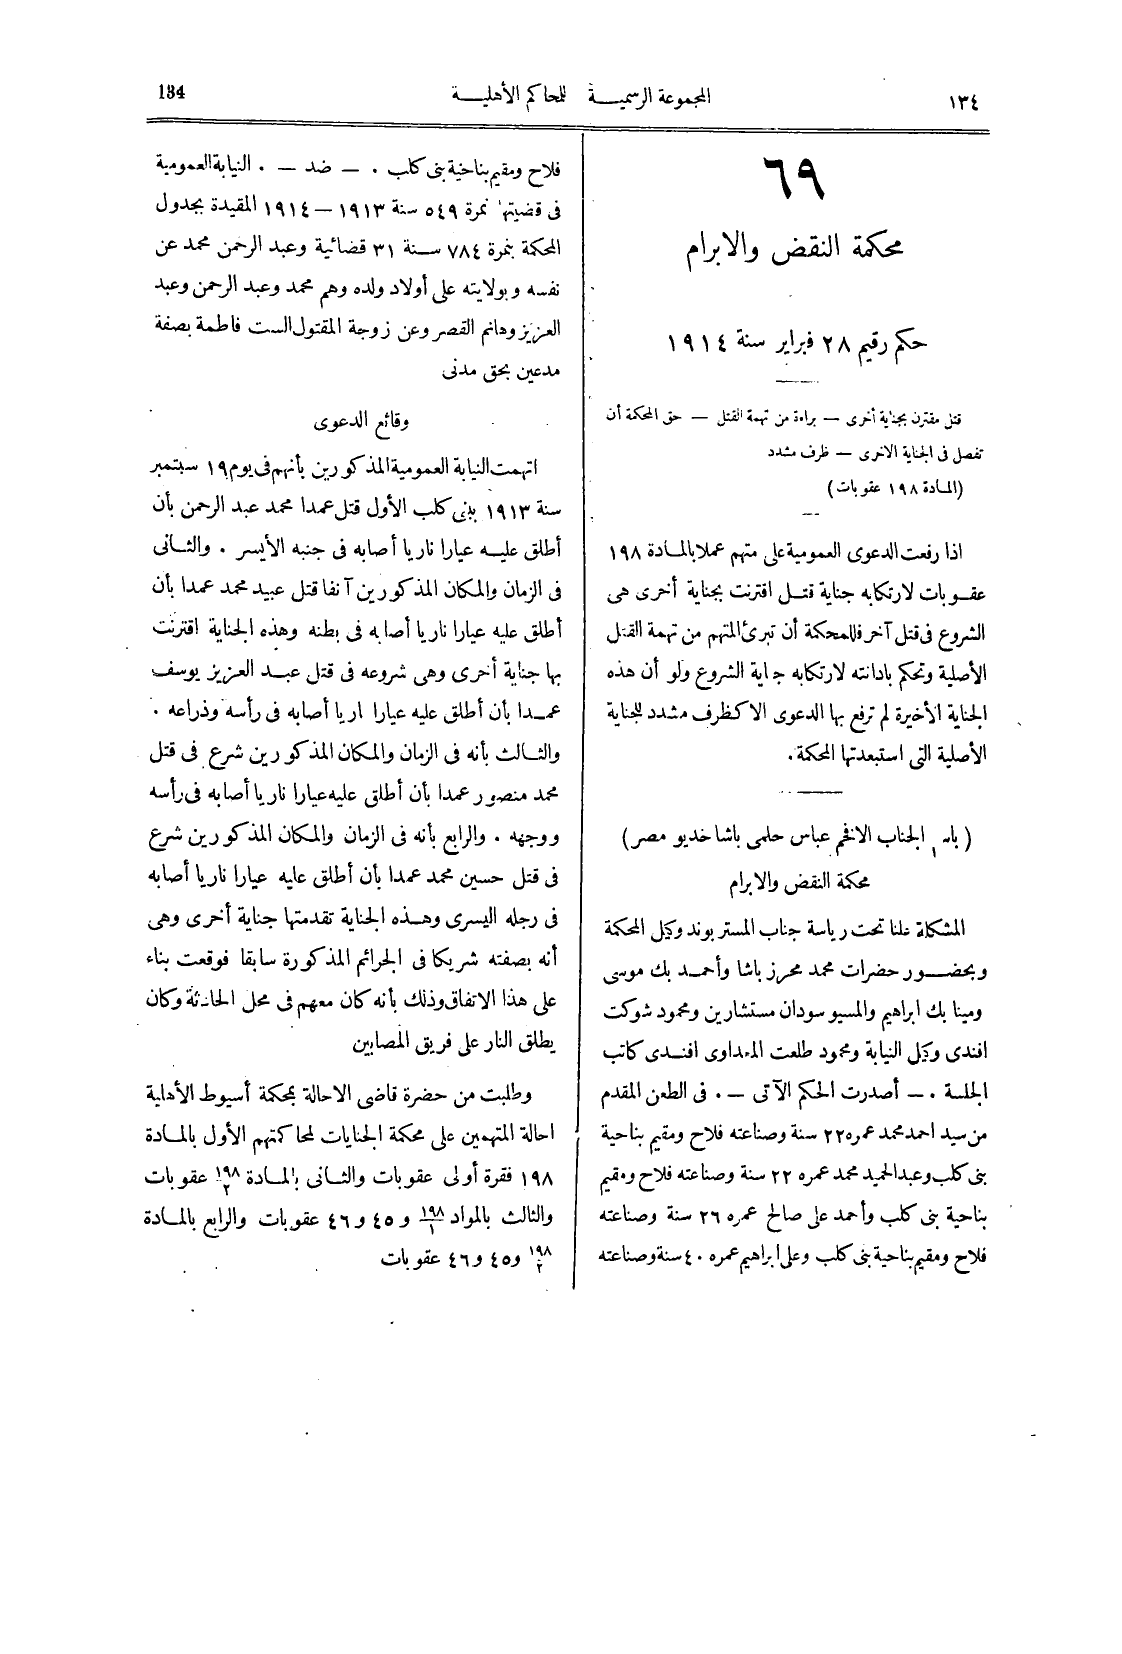 ١٣٤
المجموعة الرسمية للمحاكم الأهلية
134
٦٩
محكمة النقض والابرام
حكم رقيم ٢٨ فبراير سنة ١٩١٤
قتل مقترن بجناية أخرى — براءة من تهمة القتل — حق المحكمة أن
تفصل فى الجناية الاخرى — ظرف مشدد
(المادة ١٩٨ عقوبات)
اذا رفعت الدعوى العمومية على متهم عملا بالمادة ١٩٨
عقوبات لارتكابه جناية قتل اقترنت بجناية أخرى هى
الشروع فى قتل آخر فللمحكمة أن تبرئ المتهم من تهمة القتل
الأصلية وتحكم بادانته لارتكابه جناية الشروع ولو أن هذه
الجناية الأخيرة لم ترفع بها الدعوى الا كظرف مشدد للجناية
الأصلية التى استبعدتها المحكمة.
( باسم الجناب الافخم عباس حلمى باشا خديو مصر)
محكمة النقض والابرام
المشكلة علنا تحت رياسة جناب المستر بوند وكيل المحكمة
وبحضور حضرات محمد محرز باشا وأحمد بك موسى
ومينا بك ابراهيم والمسيو سودان مستشارين ومحمود شوكت
افندى وكيل النيابة ومحمود طلعت المعداوى افندى كاتب
الجلسة . — أصدرت الحكم الآتى — . فى الطعن المقدم
من سيد احمد محمد عمره ٢٢ سنة وصناعته فلاح ومقيم بناحية
بنى كلب وعبد الحميد محمد عمره ٢٢ سنة وصناعته فلاح ومقيم
بناحية بنى كلب وأحمد على صالح عمره ٢٦ سنة وصناعته
فلاح ومقيم بناحية بنى كلب وعلى ابراهيم عمره ٤٠ سنة وصناعته
فلاح ومقيم بناحية بنى كلب . — ضد — . النيابة العمومية
فى قضيتها نمرة ٥٤٩ سنة ١٩١٣ — ١٩١٤ المقيدة بجدول
المحكمة بنمرة ٧٨٤ سنة ٣١ قضائية وعبد الرحمن محمد عن
نفسه وبولايته على أولاد ولده وهم محمد وعبد الرحمن وعبد
العزيز وهانم القصر وعن زوجة المقتول الست فاطمة بصفة
مدعين بحق مدنى
وقائع الدعوى
اتهمت النيابة العمومية المذكورين بأنهم فى يوم ١٩ سبتمبر
سنة ١٩١٣ ببنى كلب الأول قتل عمدا محمد عبد الرحمن بأن
أطلق عليه عيارا ناريا أصابه فى جنبه الأيسر . والثانى
فى الزمان والمكان المذكورين آنفا قتل عبيد محمد عمدا بأن
أطلق عليه عيارا ناريا أصابه فى بطنه وهذه الجناية اقترنت
بها جناية أخرى وهى شروعه فى قتل عبد العزيز يوسف
عمدا بأن أطلق عليه عيارا ناريا أصابه فى رأسه وذراعه .
والثالث بأنه فى الزمان والمكان المذكورين شرع فى قتل
محمد منصور عمدا بأن أطلق عليه عيارا ناريا أصابه فى رأسه
ووجهه . والرابع بأنه فى الزمان والمكان المذكورين شرع
فى قتل حسين محمد عمدا بأن أطلق عليه عيارا ناريا أصابه
فى رجله اليسرى وهذه الجناية تقدمتها جناية أخرى وهى
أنه بصفته شريكا فى الجرائم المذكورة سابقا فوقعت بناء
على هذا الاتفاق وذلك بأنه كان معهم فى محل الحادثة وكان
يطلق النار على فريق المصابين
وطلبت من حضرة قاضى الاحالة بمحكمة أسيوط الأهلية
احالة المتهمين على محكمة الجنايات لمحاكمتهم الأول بالمادة
١٩٨ فقرة أولى عقوبات والثانى بالمادة ١٩٨/٢ عقوبات
والثالث بالمواد ١٩٨/١ و ٤٥ و ٤٦ عقوبات والرابع بالمادة
١٩٨/٢ و ٤٥ و ٤٦ عقوبات